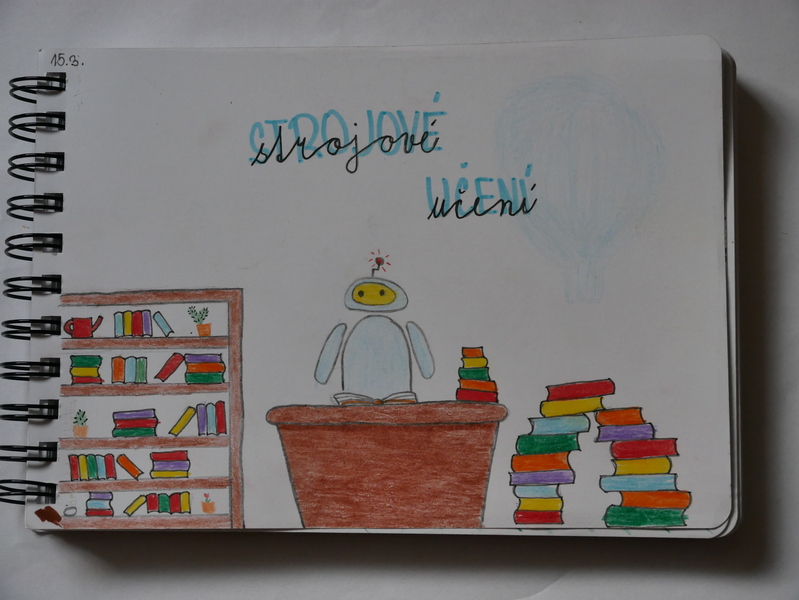 15.3.
STROJOVÉ
strojové
UČENÍ
učení